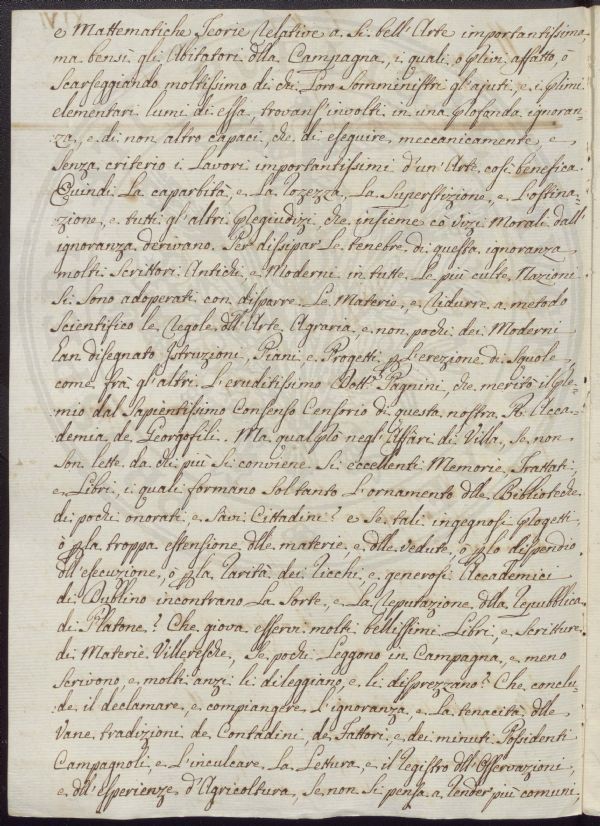 e Mattematiche Teorie Relative a Sì bell'Arte importantissima,
ma bensì gli Abitatori dlla Campagna, i quali o p̄ivi affatto, ò
Scarseggiando moltissimo di chi Loro Somministri gl'ajuti, e i p̄imi
elementari lumi di essa, trovans'involti in una p̄ofonda ignoran-
za, e di non altro capaci, che di eseguire meccanicamente, e
Senza criterio i Lavori importantissimi d'un'Arte così benefica.
Quindi La caparbità, e La Rozezza, La Superstizione, e L'ostina-
zione, e tutti gl'altri p̄egiudizj, che insieme cò vizj Morali dall'
ignoranza derivano. Per dissipar Le tenebre di questa ignoranza
molti Scrittori Antichi, e Moderni in tutte Le più culte Nazioni
Si Sono adoperati con disporre Le Materie, e Ridurre a metodo
Scientifico le Regole dll'Arte Agraria, e non pochi dei Moderni
Ean disegnato Istruzioni, Piani e Progetti p L'erezione di Squole
come frà gl'altri L'eruditissimo Dott.r Pagnini, che meritò il p̄e-
mio dal Sapientissimo Consenso Censorio di questa nostra R. Acca-
demia de Georgofili. Ma qual p̄ò negl'Affari di Villa, Se non
Son lette da chi più Si conviene Sì eccellenti Memorie, Trattati,
e Libri, i quali formano Soltanto L'ornamento dlle Biblioteche
di pochi onorati, e Savi Cittadini? e Se tali ingegnosi p̄ogetti
ò p la troppa estensione dlle materie, e dlle vedute, ò p lo dispendio
dll'esecuzione, ò p la Rarità dei Ricchi, e generosi Accademici
di Dublino incontrano La Sorte, e La Reputazione dlla Repubblica
di Platone? Che giova esservi molti bellissimi Libri, e Scritture
di Materie Villeresche, Se pochi Leggono in Campagna, e meno
Scrivono, e molti anzi li dileggiano, e li disprezzano? Che conclu-
:de il declamare, e compiangere L'ignoranza, e La tenacità dlle
Vane tradizioni de Contadini, de Fattori, e dei minuti Possidenti
Campagnoli e L'inculcare La Lettura, e il Registro dll'Osservazioni,
e dll'esperienze d'Agricoltura, Se non Si pensa a Render più comuni